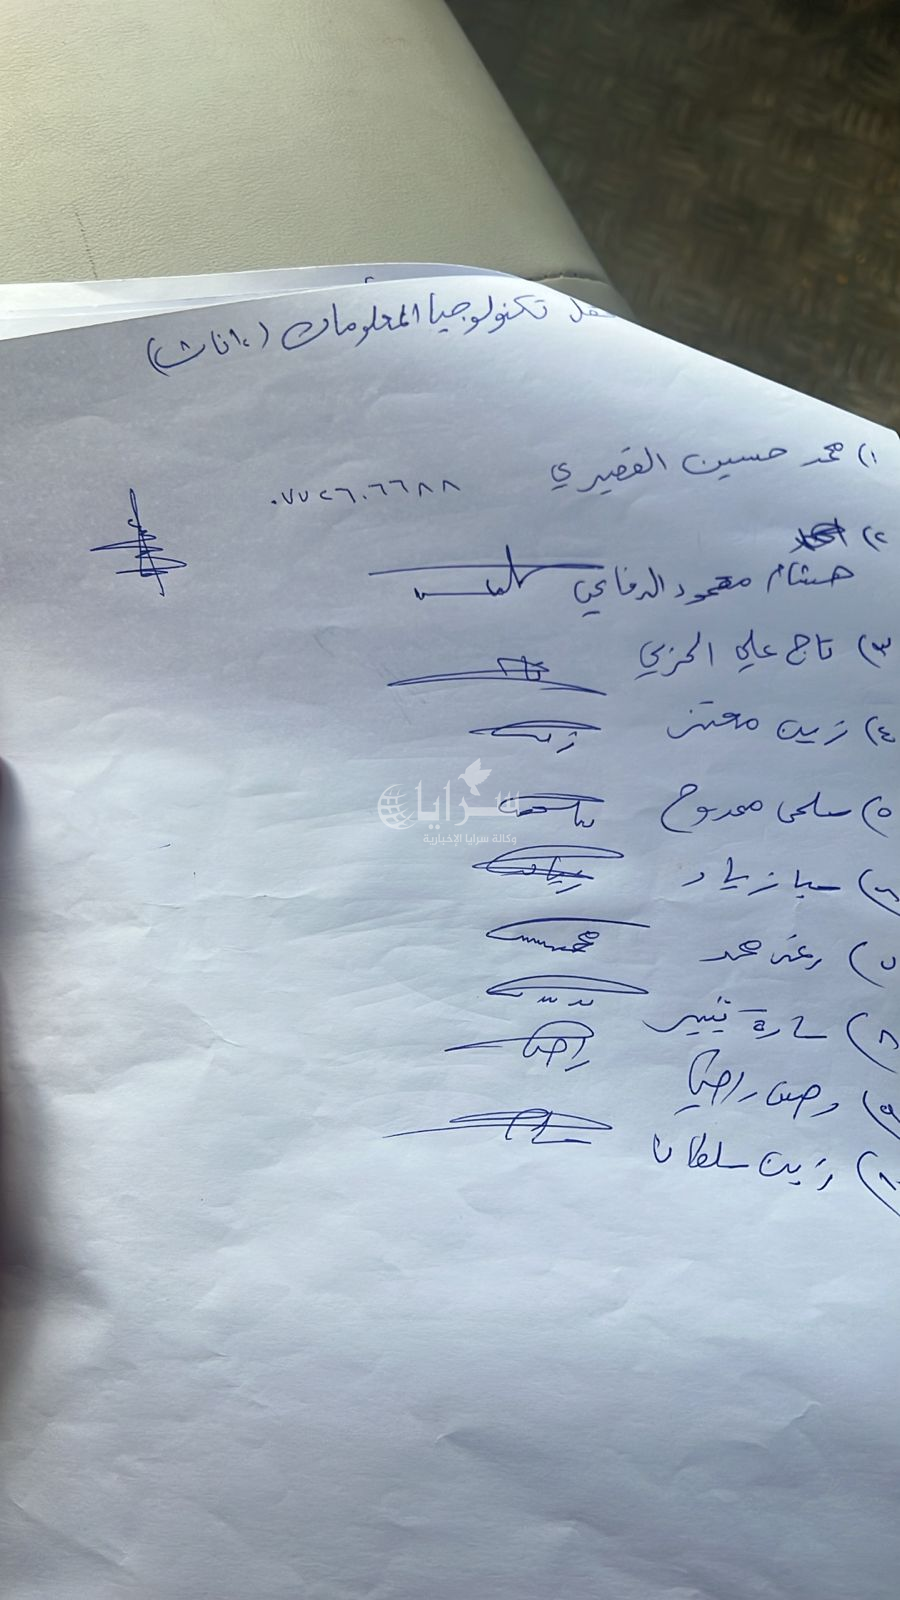 حقل تكنولوجيا المعلومات (١٠ اناث)
١) محمد حسين القصيري ٠٧٧٢٦٠٦٦٨٨
٢)
هشام محمود الرفاعي
٣) تاج علي الحزي
٤) زين معتز
٥) سلمى ممدوح
سرايا
وكالة سرايا الإخبارية
٦) صبا زياد
٧) رغد محمد
٨) سارة تيسير
٩)
١٠) زين سلطان